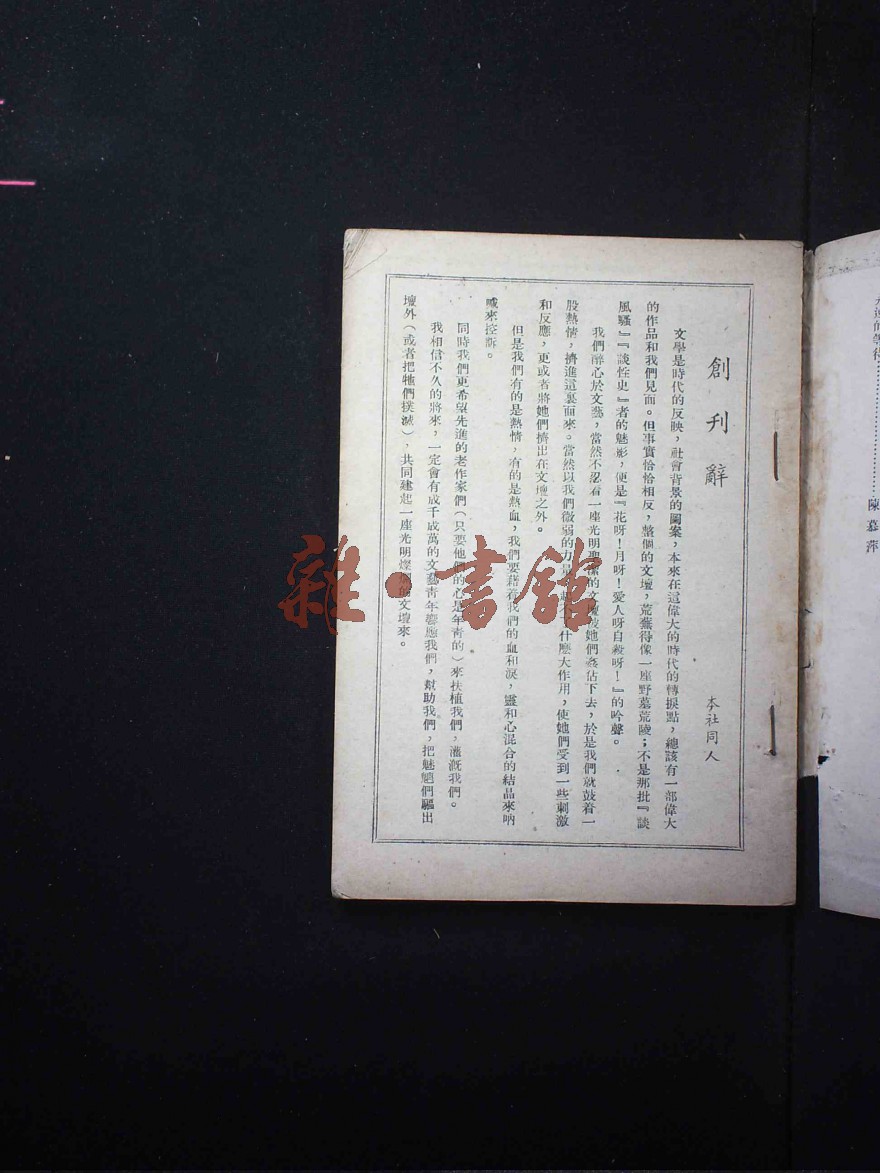 創刊辭
本社同人
文學是時代的反映，社會背景的圖案，本來在這偉大的時代的轉捩點，總該有一部偉大
的作品和我們見面。但事實恰恰相反，整個的文壇，荒蕪得像一座野墓荒陵；不是那批『談
風騷』『談性史』者的魅影，便是『花呀！月呀！愛人呀自殺呀！』的吟聲。
我們醉心於文藝，當然不忍看一座光明聖潔的文壇被她們姦佔下去，於是我們就鼓着一
股熱情，擠進這裏面來。當然以我們微弱的力量，起不了什麼大作用，使她們受到一些刺激
和反應，更或者將她們擠出在文壇之外。
但是我們有的是熱情，有的是熱血，我們要藉着我們的血和淚，靈和心混合的結晶來吶
喊來控訴。
同時我們更希望先進的老作家們（只要他們的心是年青的）來扶植我們，灌溉我們。
我相信不久的將來，一定會有成千成萬的文藝青年響應我們，幫助我們，把魅魎們驅出
壇外（或者把牠們撲滅），共同建起一座光明燦爛的文壇來。
的等得…………………陳慕萍
雜·書館